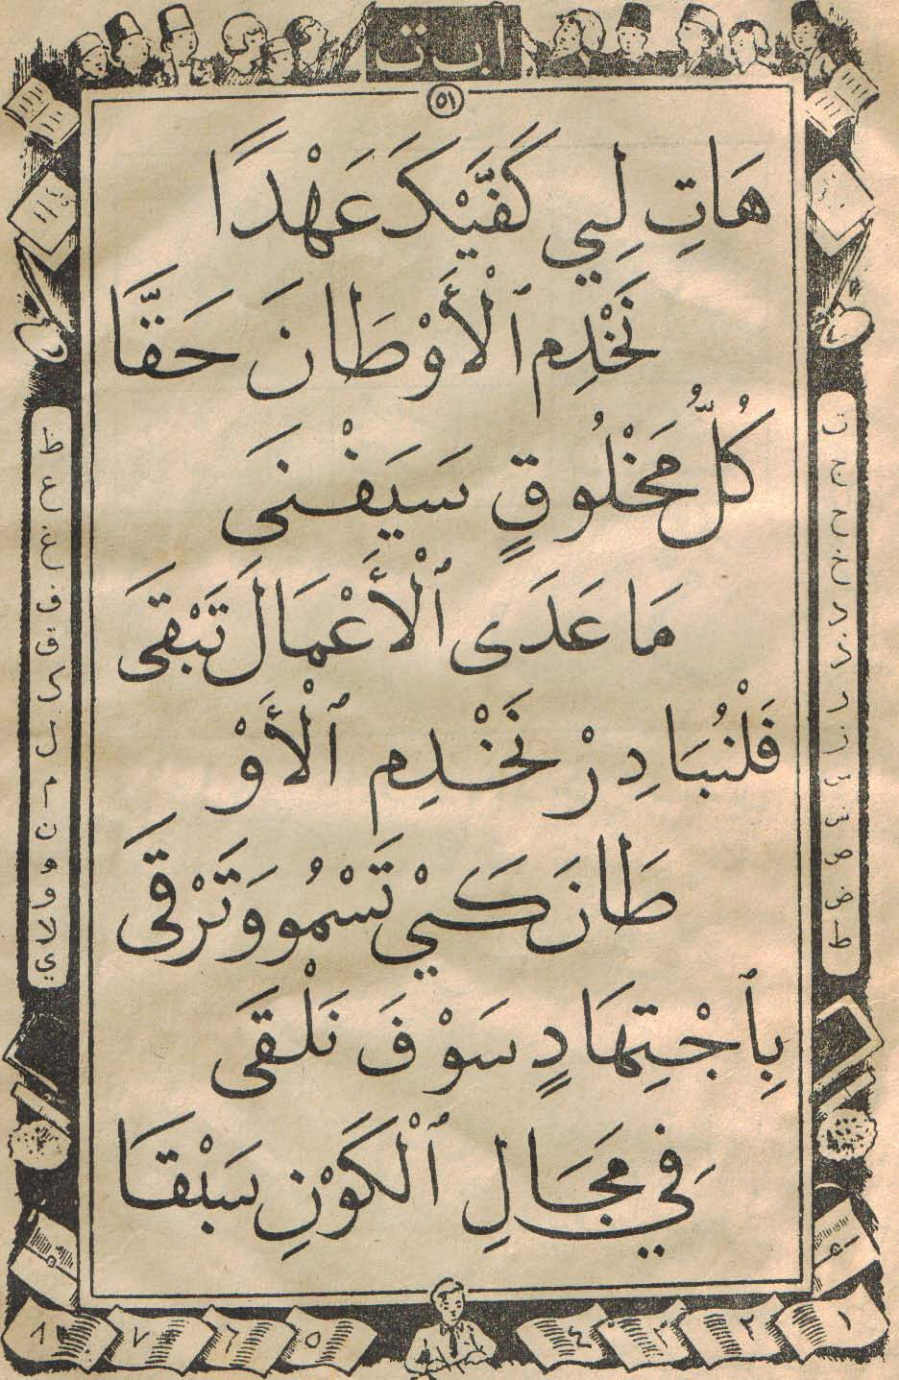 ا ب ت
٥١
هَاتِ لِي كَفَّيْكَ عَهْدًا
نَخْدِمِ ٱلْأَوْطَانَ حَقَّا
كُلُّ مَخْلُوقٍ سَيَفْنَى
مَا عَدَى ٱلْأَعْمَالَ تَبْقَى
فَلْنُبَادِرْ نَخْدِمِ ٱلْأَوْ
طَانَ كَيْ تَسْمُو وَتَرْقَى
بِٱجْتِهَادٍ سَوْفَ نَلْقَى
فِي مَجَالِ ٱلْكَوْنِ سَبْقَا
١ ٢ ٣ ٤ ٥ ٦ ٧ ٨